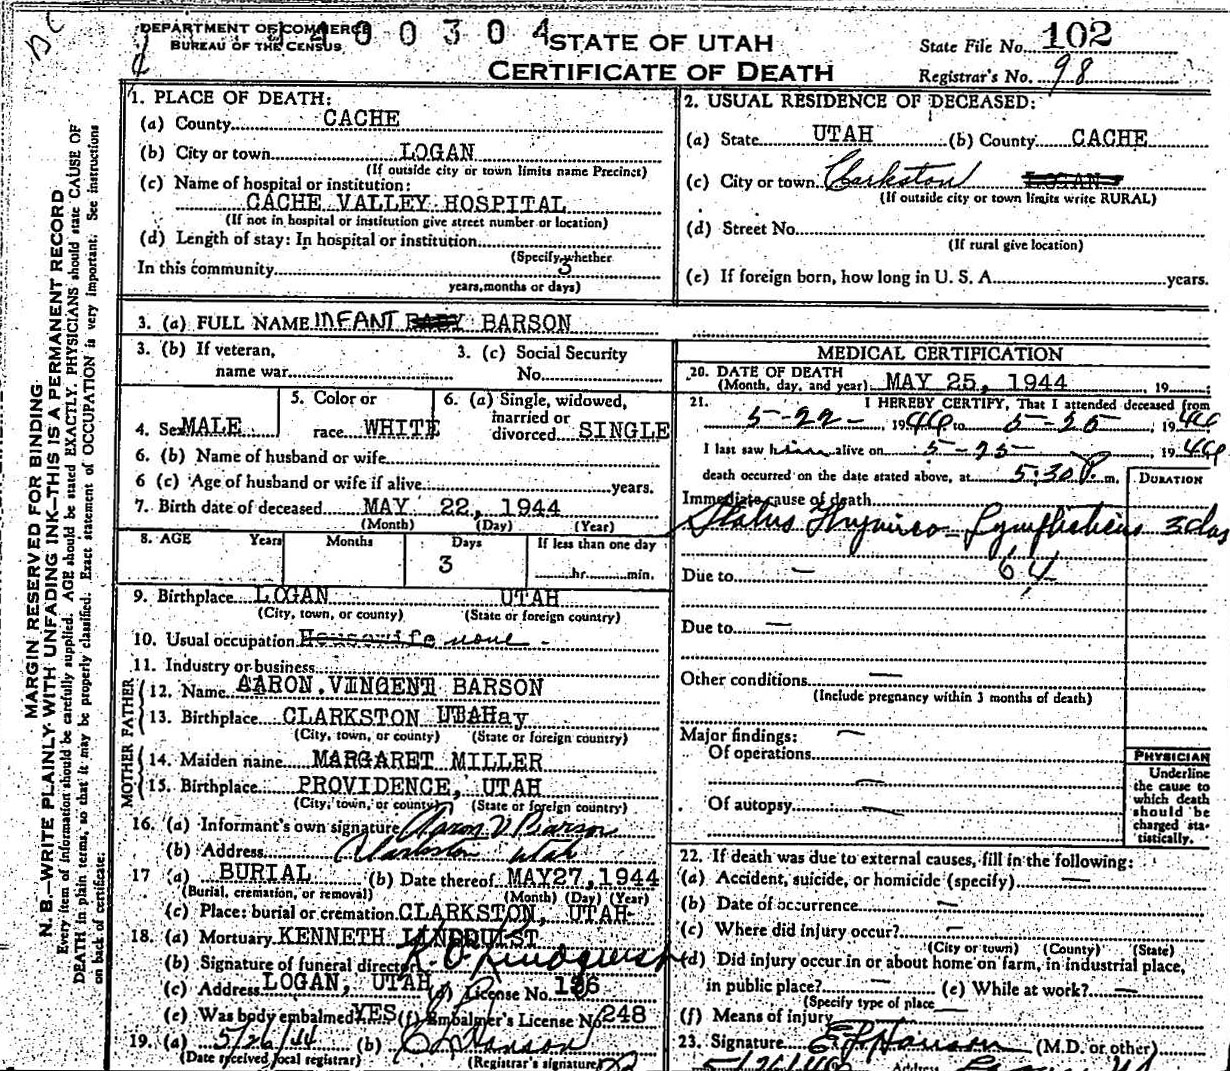 DEPARTMENT OF COMMERCE
BUREAU OF THE CENSUS
4400304
STATE OF UTAH
CERTIFICATE OF DEATH
State File No. 102
Registrar's No. 98
MARGIN RESERVED FOR BINDING
N. B.—WRITE PLAINLY WITH UNFADING INK—THIS IS A PERMANENT RECORD
Every item of information should be carefully supplied. AGE should be stated EXACTLY. PHYSICIANS should state CAUSE OF
DEATH in plain terms, so that it may be properly classified. Exact statement of OCCUPATION is very important. See instructions
on back of certificate.
1. PLACE OF DEATH:
(a) County CACHE
(b) City or town LOGAN
(If outside city or town limits name Precinct)
(c) Name of hospital or institution:
CACHE VALLEY HOSPITAL
(If not in hospital or institution give street number or location)
(d) Length of stay: In hospital or institution
(Specify whether
In this community 3
years, months or days)
2. USUAL RESIDENCE OF DECEASED:
(a) State UTAH (b) County CACHE
(c) City or town Clarkston LOGAN
(If outside city or town limits write RURAL)
(d) Street No.
(If rural give location)
(e) If foreign born, how long in U. S. A. years.
3. (a) FULL NAME INFANT BABY BARSON
3. (b) If veteran, name war
3. (c) Social Security No.
4. Sex MALE
5. Color or race WHITE
6. (a) Single, widowed, married or divorced SINGLE
6. (b) Name of husband or wife
6 (c) Age of husband or wife if alive years.
7. Birth date of deceased MAY 22, 1944
(Month) (Day) (Year)
8. AGE Years Months Days If less than one day
3 hr. min.
9. Birthplace LOGAN UTAH
(City, town, or county) (State or foreign country)
10. Usual occupation Housewife none -
11. Industry or business
FATHER
12. Name AARON VINCENT BARSON
13. Birthplace CLARKSTON UTAH
(City, town, or county) (State or foreign country)
MOTHER
14. Maiden name MARGARET MILLER
15. Birthplace PROVIDENCE, UTAH
(City, town, or county) (State or foreign country)
16. (a) Informant's own signature Aaron V Barson
(b) Address Clarkston Utah
17 (a) BURIAL (b) Date thereof MAY 27, 1944
(Burial, cremation, or removal) (Month) (Day) (Year)
(c) Place: burial or cremation CLARKSTON, UTAH
18. (a) Mortuary KENNETH LINDQUIST
(b) Signature of funeral director K. O. Lindquist
(c) Address LOGAN, UTAH (d) License No. 186
(e) Was body embalmed YES (f) Embalmer's License No. 248
19. (a) 5/26/44 (b) E L Hanson
(Date received local registrar) (Registrar's signature)
MEDICAL CERTIFICATION
20. DATE OF DEATH
(Month, day, and year) MAY 25, 1944 19
21. I HEREBY CERTIFY, That I attended deceased from
5-22- 1944 to 5-25 1944
I last saw him alive on 5-25- 1944
death occurred on the date stated above, at 5:30 P. m.
DURATION
Immediate cause of death
Status Thymico-Lymphaticus 3 days
64
Due to —
Due to —
Other conditions —
(Include pregnancy within 3 months of death)
Major findings: —
Of operations
Of autopsy
PHYSICIAN
Underline
the cause to
which death
should be
charged sta-
tistically.
22. If death was due to external causes, fill in the following:
(a) Accident, suicide, or homicide (specify) —
(b) Date of occurrence —
(c) Where did injury occur? —
(City or town) (County) (State)
(d) Did injury occur in or about home on farm, in industrial place,
in public place? — (e) While at work? —
(Specify type of place
(f) Means of injury
23. Signature E L Hanson (M.D. or other)
5/26/44 Address